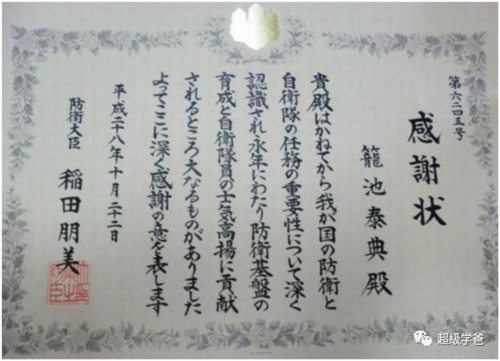 第六二四五号
感謝状
籠池泰典殿
貴殿はかねてから我が国の防衛と
自衛隊の任務の重要性について深く
認識され永年にわたり防衛基盤の
育成と自衛隊員の士気高揚に貢献
されるところ大なるものがありました
よってここに深く感謝の意を表します
平成二十八年十月二十二日
防衛大臣 稲田朋美
超级学爸